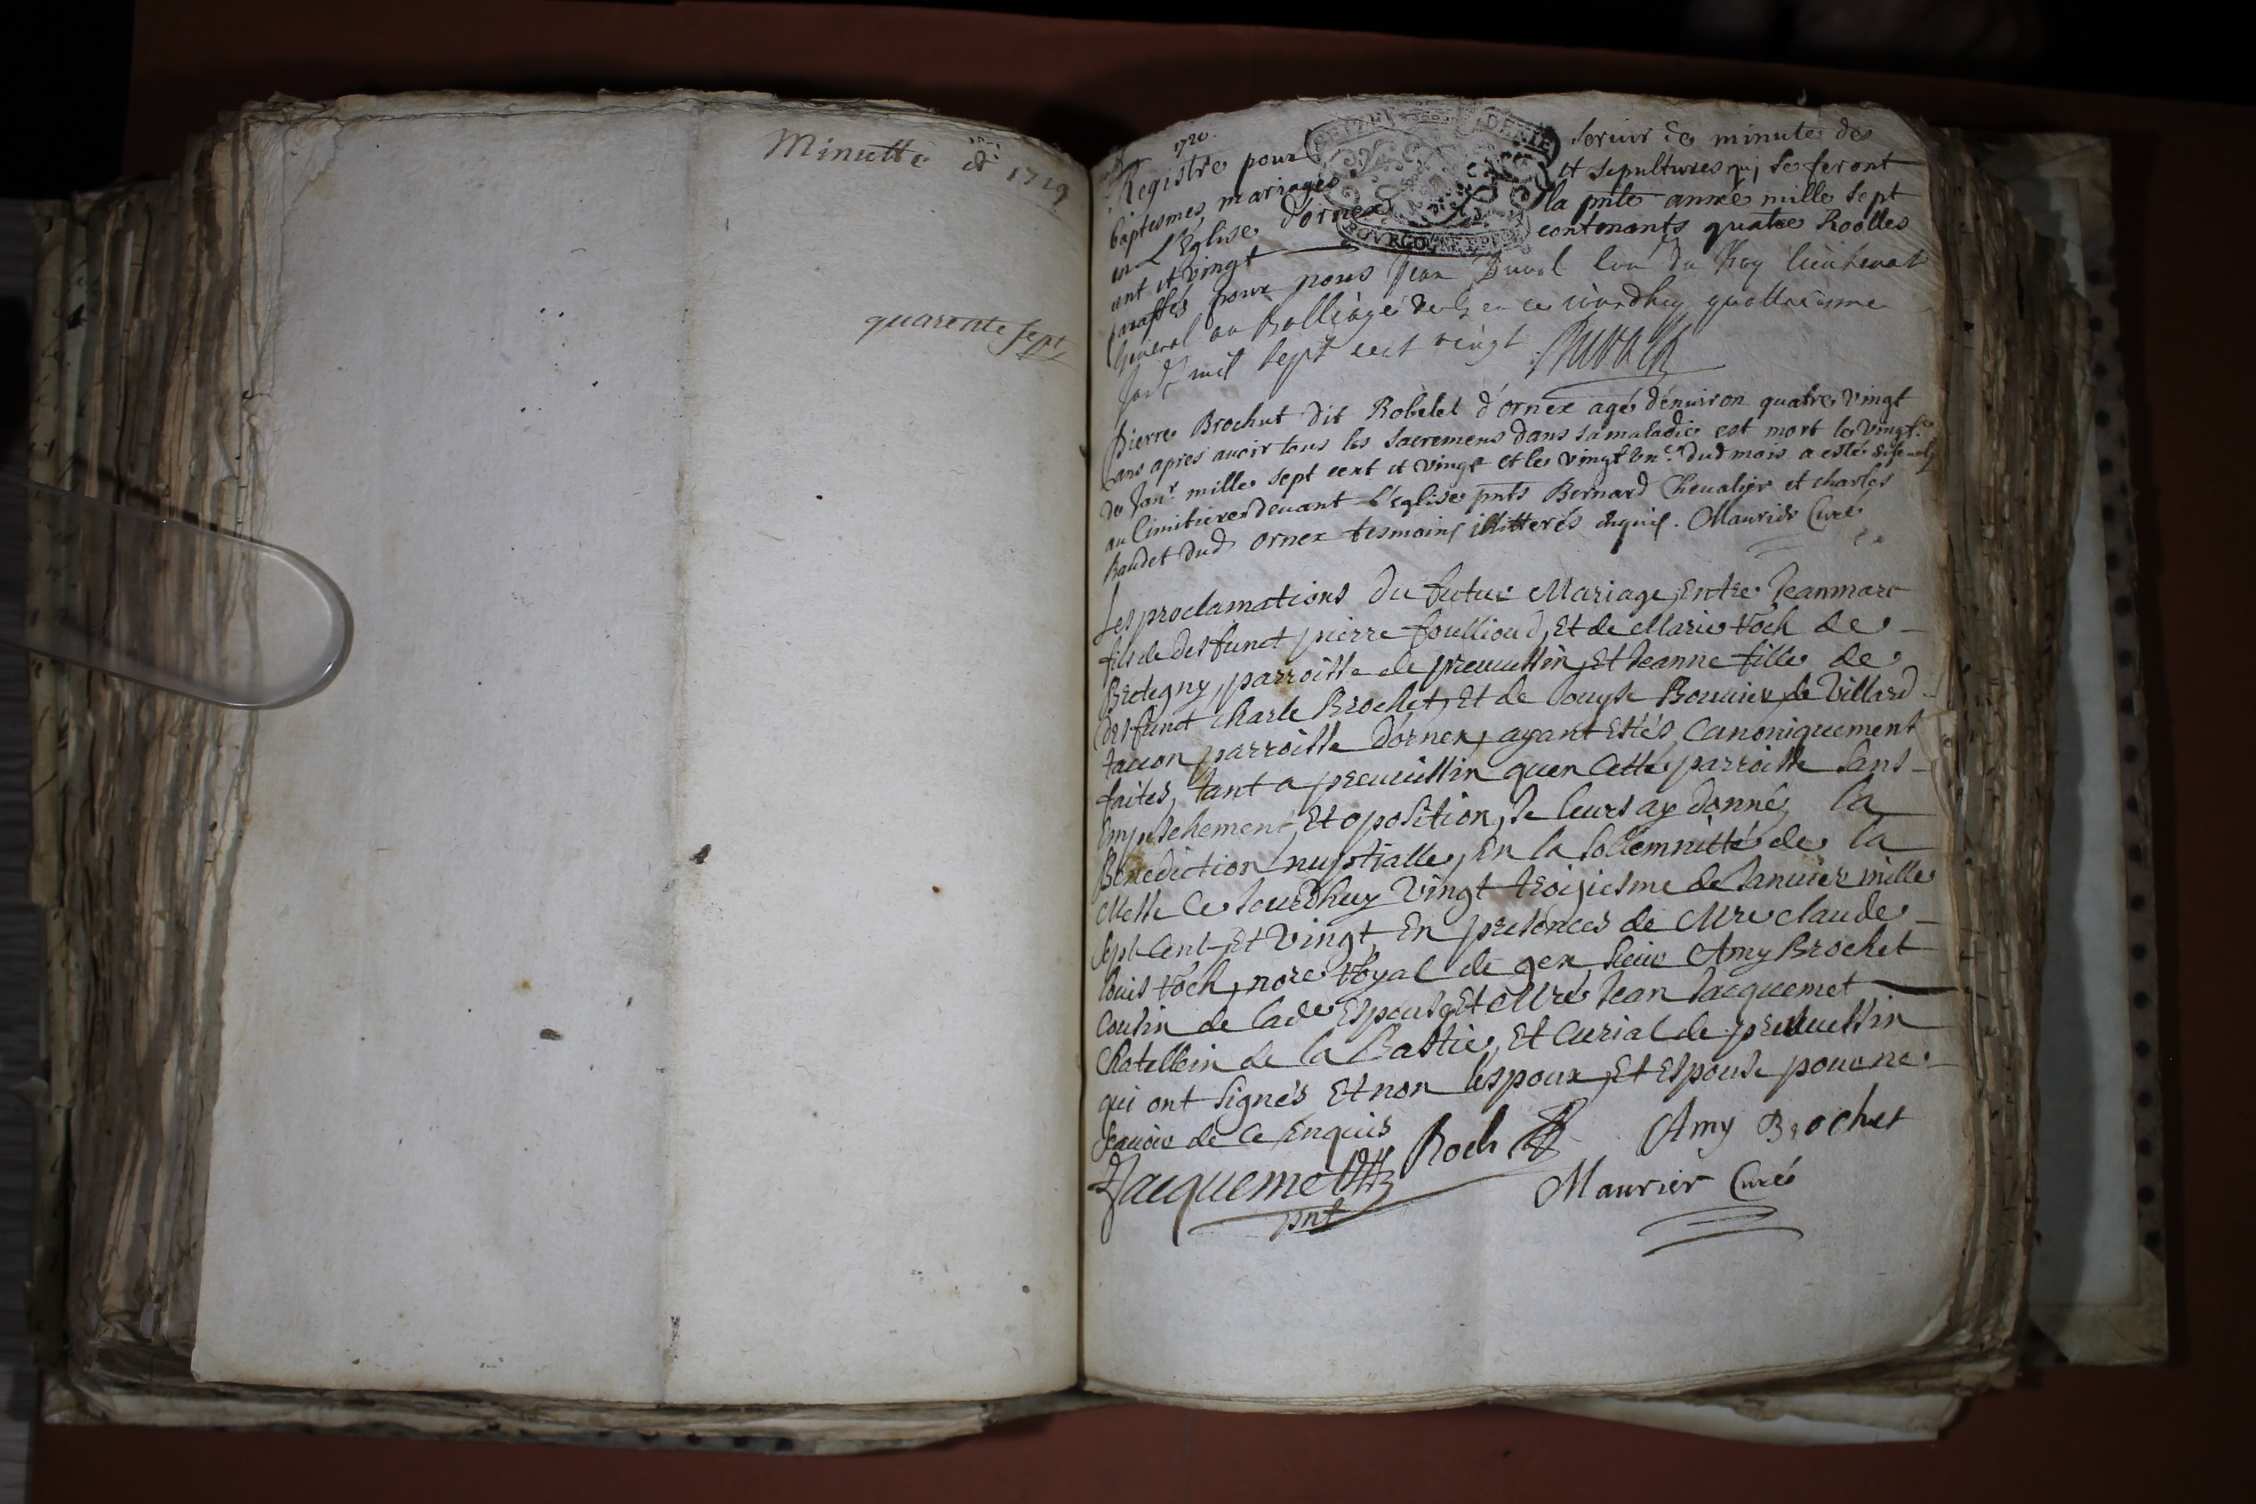 Minutte de 1719
quarente sept
1720
Registre pour servir de minute des
baptesmes, mariages et sepultures qui se feront
en L'Eglise d'ornex la pnte année mille sept
cent et vingt contenants quatre Roolles
paraffés pour nous Jean Duval Con.er du Roy lieutenant
general au Balliage de Gex ce jourdhuy quattriesme
Janv. mil sept cent vingt Duval
GEN DEN.IE
BOURGOGNE
Pierre Brochut dit Robelet d'ornex agé d'enuiron quatre vingt
ans apres auoir tous les sacremens dans sa maladie est mort le vingt.e
de Janr. mille sept cent et vingt et le vingt un.e dud mois a esté
au Cimitiere deuant l'Eglise pnts Bernard Cheualier et charles
baudet dud ornex tesmoins illitterés enquis. Maurier Curé
Les proclamations du futur Mariage, Entre Jeanmarc
fils de deffunct pierre foullioud, Et de Marie Roch de
Bretigny, parroisse de preuessin, Et Jeanne fille de
deffunct charle Brochet, Et de Louyse Bouuier de Villard
taccon parroisse d'ornex, ayant Estés Canoniquement
faites, tant a preuessin qu'en Cette parroisse sans
Empeschement, Et oposition, Je leurs ay donné la
Benediction nuptialle, En la Sollemnitté de la
Messe Ce Jourdhuy Vingt troisiesme de Januier mille
Sept Cent Et Vingt, En presences de Mre claude
louis Roch, nore Royal de gex, Sieur Amy Brochet
Cousin de lade Espouse, Et Mre Jean Jacquemet
Chatellein de la Bastie, Et Curial de preuessin
qui ont signés Et non l'espoux, Et Espouse pour ne
scauoir de Ce Enquis
Roch Amy Brochet
Jacquemet Maurier Curé
pnt